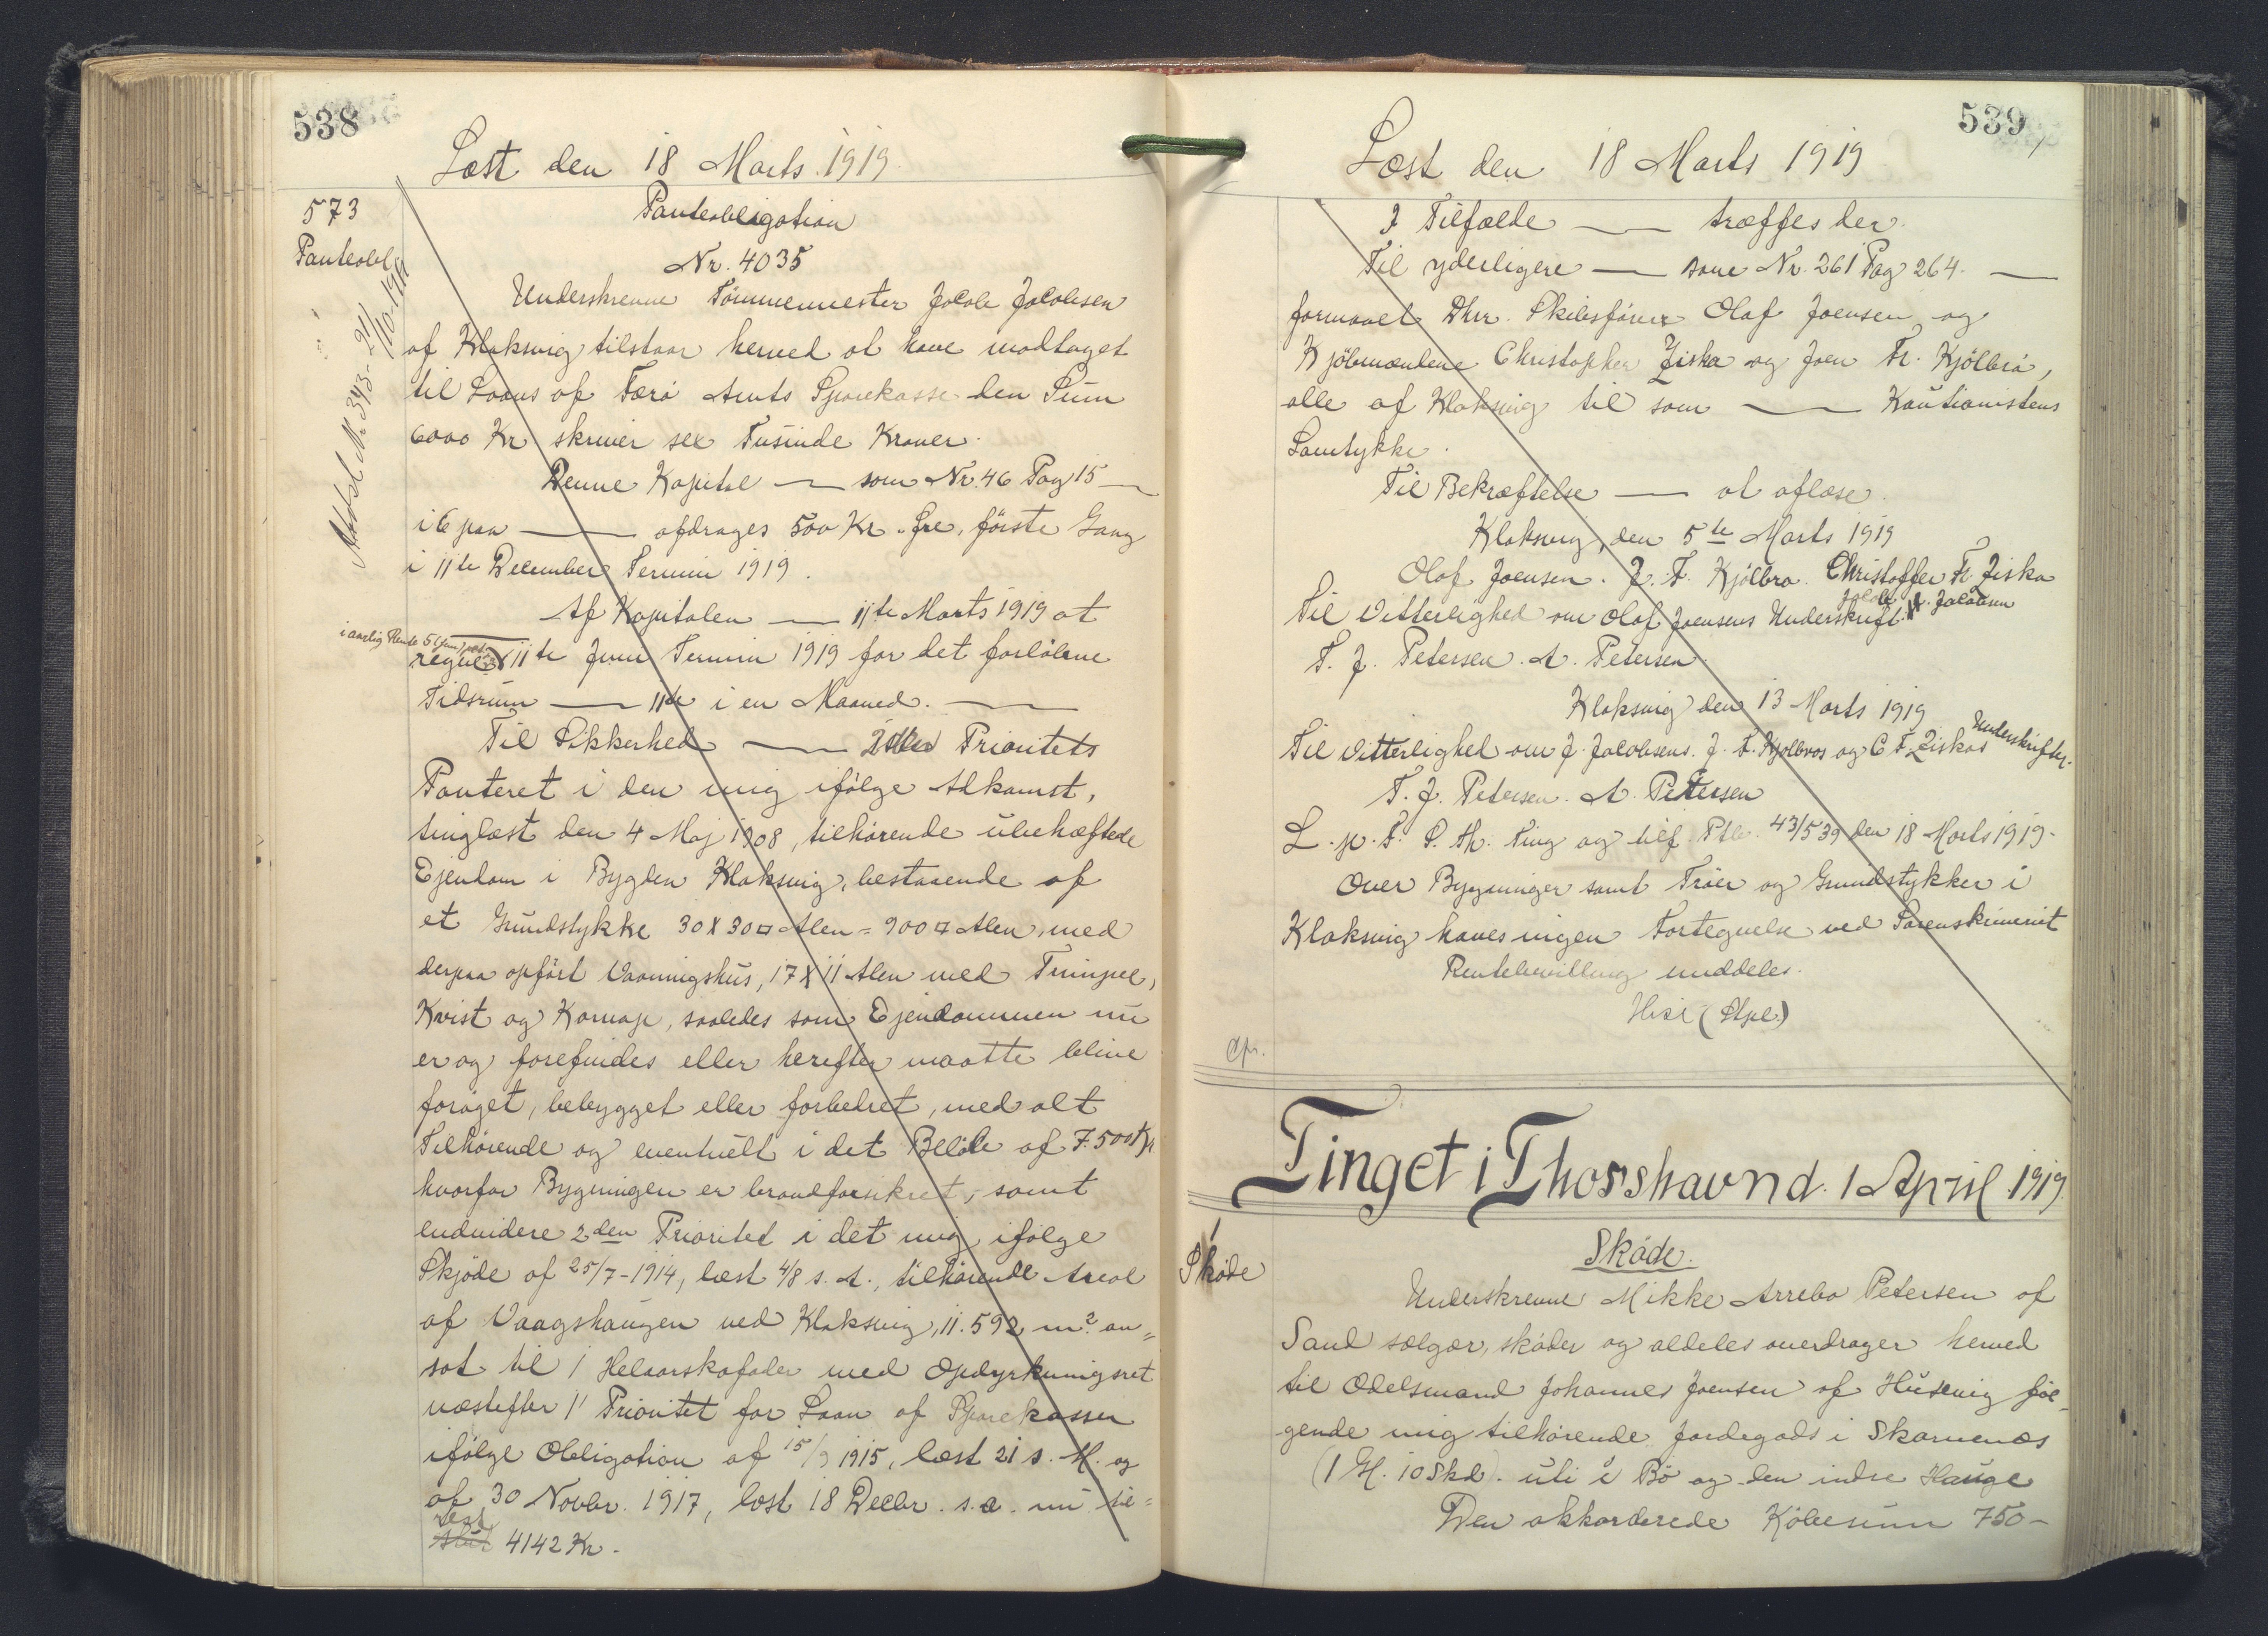 538
Læst den 18 Marts 1919.
573
Panteobl.
Aflæst N. 343 - 21/10-1919
Panteobligation
Nr. 4035
Underskrevne Tömmermester Jacob Jacobsen
af Klaksvig tilstaar herved at have modtaget
til Laans af Færö Amts Sparekasse den Sum
6000 Kr. skriver sex Tusinde Kroner.
Denne Kapital — som Nr. 46 Pag 15 —
i 6 paa — afdrages 500 Kr. fre, förste Gang
i 11te December Termin 1919.
Af Kapitalen — 11te Marts 1919 at
i aarlig Rente 5 (fem) pct.
regne 11te Juni Termin 1919 for det forlöbne
Tidsrum — 11te i en Maaned. —
Til Sikkerhed — 2den Prioritets
Panteret i den mig ifölge Adkomst,
tinglæst den 4 Maj 1908, tilhörende ubehæftede
Ejendom i Bygden Klaksvig, bestaaende af
et Grundstykke 30 X 30 □ Alen = 900 □ Alen, med
derpaa opfört Vaaningshus, 17 X 11 Alen med Trimpel,
Kvist og Karnap, saaledes som Ejendommen nu
er og forefindes eller herefter maatte blive
foröget, bebygget eller forbedret, med alt
Tilhörende og eventuelt i det Belöb af 7.500 Kr
hvorfor Bygningen er brandforsikret, samt
endvidere 2den Prioritet i det mig ifölge
Skjöde af 25/7-1914, læst 4/8 s. A., tilhörende Areal
af Vaagshaugen ved Klaksvig, 11.592 m² an=
sat til 1 Helaarskofoder med Opdyrkningsret
næstefter 1' Prioritet for Laan af Sparekassen
ifölge Obligation af 15/9 1915, læst 21 s. M. og
af 30 Novbr. 1917, læst 18 Decbr. s. a. nu til=
rest
4142 Kr.
539
Læst den 18 Marts 1919
I Tilfælde — træffes der.
Til yderligere — som Nr. 261 Pag 264. —
formaaet Dhrr. Skibsförer Olaf Joensen og
Kjöbmændene Christopher Ziska og Joen Fr. Kjölbro,
alle af Klaksvig til som — Kautionistens
Samtykke.
Til Bekræftelse — at aflæse.
Klaksvig, den 5te Marts 1919
Olaf Joensen. J. F. Kjölbro. Christoffer Fr. Ziska
Jacob H. Jacobsen
Til Vitterlighed om Olaf Joensens Underskrift.
T. J. Petersen. A. Petersen.
Klaksvig den 13 Marts 1919
Til Vitterlighed om J. Jacobsens. J. F. Kjölbros og C. F. Ziskas Underskrifter.
T. J. Petersen. A. Petersen
L. p. F. S. Th. Ting og tilf. Ptb. 43/539 den 18 Marts 1919.
Over Bygninger samt Tröer og Grundstykker i
Klaksvig haves ingen Fortegnelse ved Sorenskriveriet
Rentebevilling meddeles.
Cpr.
Tinget i Thorshavn d. 1 April 1919.
1
Sköde
Sköde.
Underskrevne Mikke Arrebo Petersen af
Sand sælger, sköder og aldeles overdrager herved
til Odelsmand Johannes Joensen af Husevig föl-
gende mig tilhörende Jordegods i Skarvenæs
(1 Gl. 10 Skd). uti i Bö og den indre Hauge
Den akkorderede Köbesum 750 -